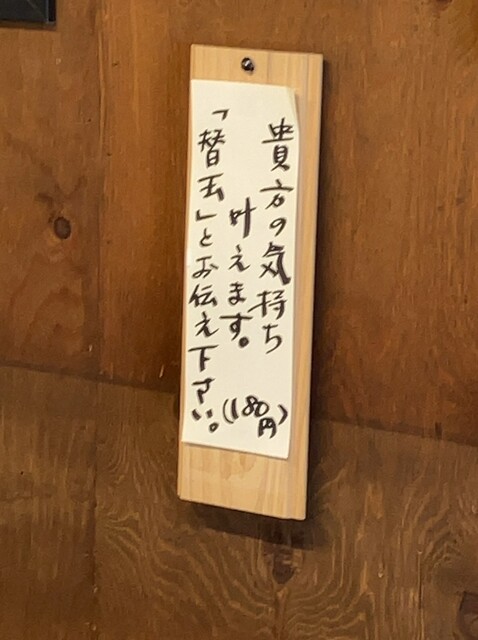 貴方の気持ち
叶えます。
(180円)
「替玉」とお伝え下さい。